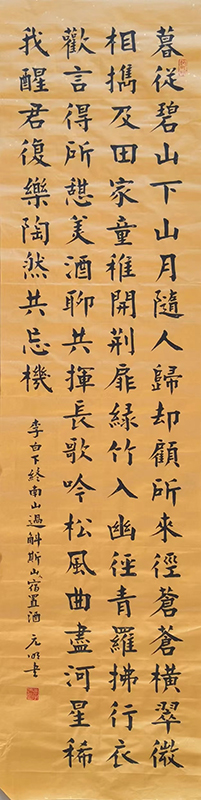 暮従碧山下山月隨人歸却顧所來徑蒼蒼橫翠微
相擕及田家童稚開荆扉緑竹入幽徑青羅拂行衣
歡言得所憇美酒聊共揮長歌吟松風曲盡河星稀
我醒君復樂陶然共忘機
李白下終南山過斛斯山宿置酒 元明书